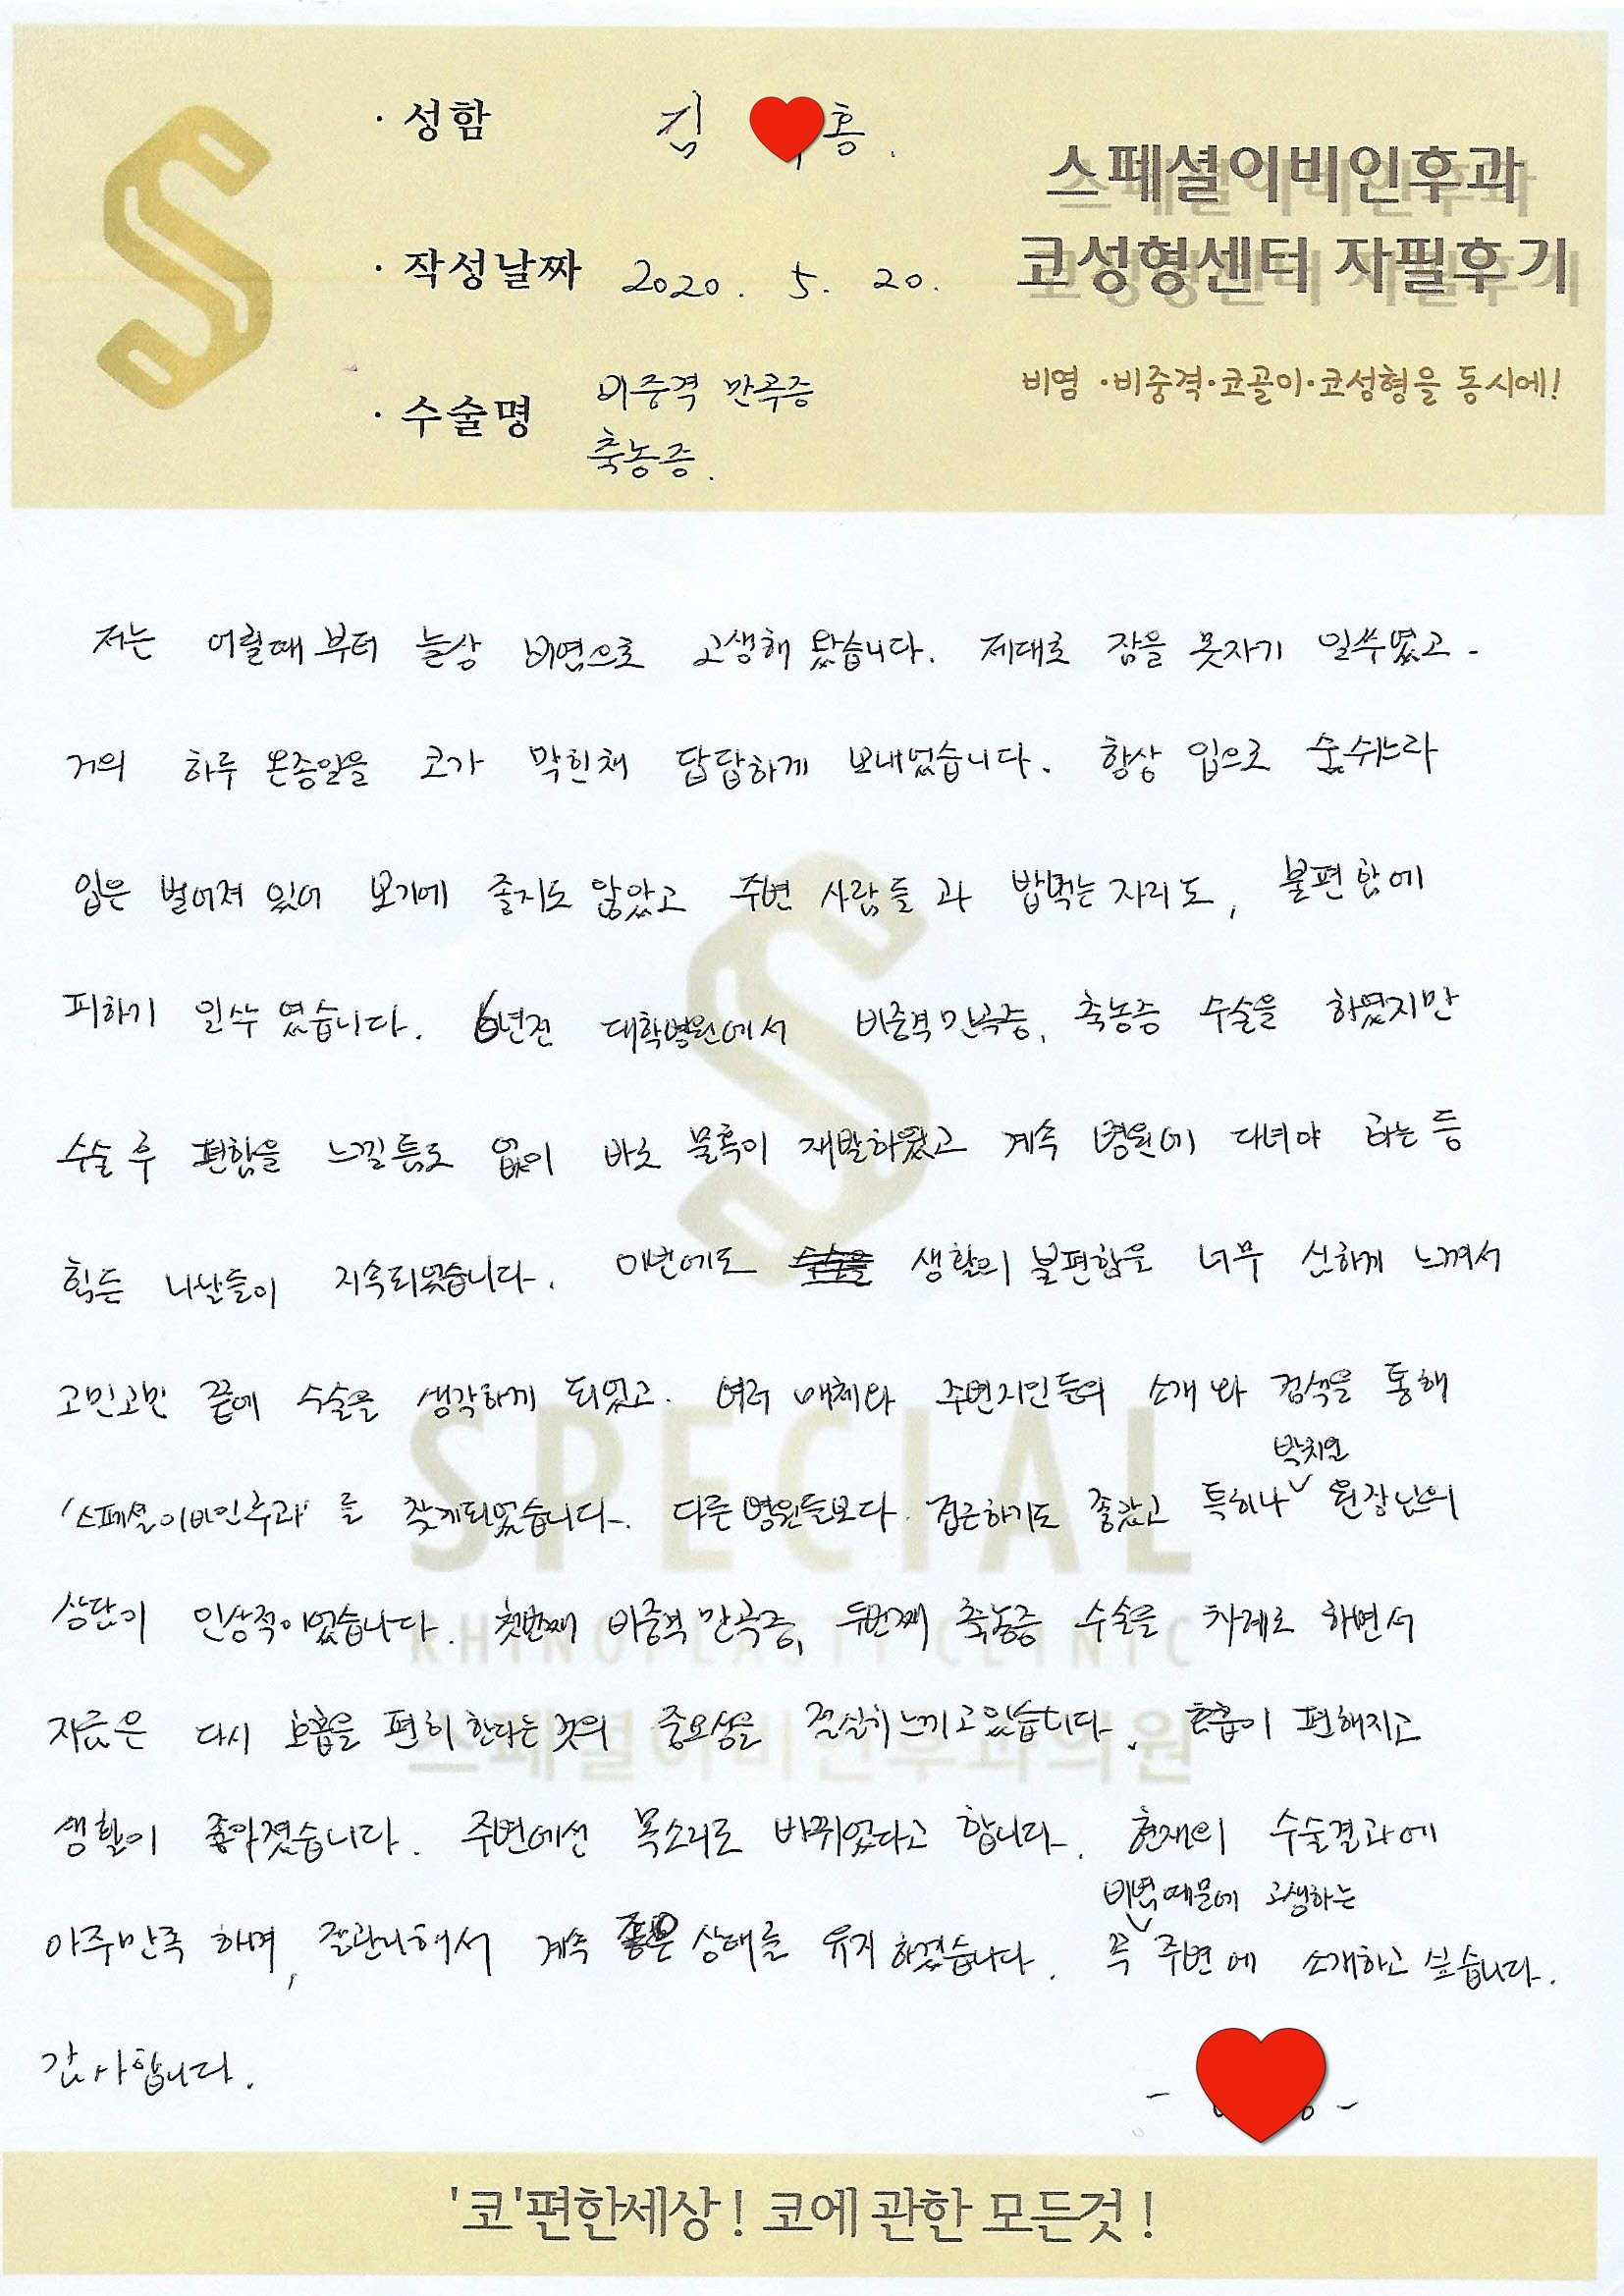 · 성함 김 홍.
스페셜이비인후과
코성형센터 자필후기
· 작성날짜 2020. 5. 20.
비염·비중격·코골이·코성형을 동시에!
· 수술명 비중격 만곡증
축농증.
저는 어릴때 부터 늘상 비염으로 고생해 왔습니다. 제대로 잠을 못자기 일쑤였고.
거의 하루 온종일을 코가 막힌채 답답하게 보내었습니다. 항상 입으로 숨쉬느라
입은 벌어져 있어 보기에 좋지도 않았고 주변 사람들과 밥먹는 자리도, 불편함에
피하기 일쑤 였습니다. 6년전 대학병원에서 비중격만곡증, 축농증 수술을 하였지만
수술 후 편함을 느낄틈도 없이 바로 물혹이 재발하였고 계속 병원에 다녀야 하는 등
힘든 나날들이 지속되었습니다. 이번에도 생활의 불편함을 너무 심하게 느껴서
고민고민 끝에 수술을 생각하게 되었고. 여러 매체와 주변지인들의 소개와 검색을 통해
'스페셜이비인후과'를 찾게되었습니다. 다른병원들보다 접근하기도 좋았고 특히나 박치인 원장님의
상담이 인상적이었습니다. 첫번째 비중격 만곡증, 두번째 축농증 수술을 차례로 하면서
지금은 다시 호흡을 편히한다는 것의 중요성을 절실히느끼고있습니다. 호흡이 편해지고
생활이 좋아졌습니다. 주변에선 목소리도 바뀌었다고 합니다. 현재의 수술결과에
아주만족 하며, 잘관리해서 계속 좋은 상태를 유지하겠습니다. 꼭 비염때문에 고생하는 주변에 소개하고 싶습니다.
감사합니다.
SPECIAL
RHINOPLASTY CLINIC
스페셜이비인후과의원
'코'편한세상! 코에 관한 모든것!